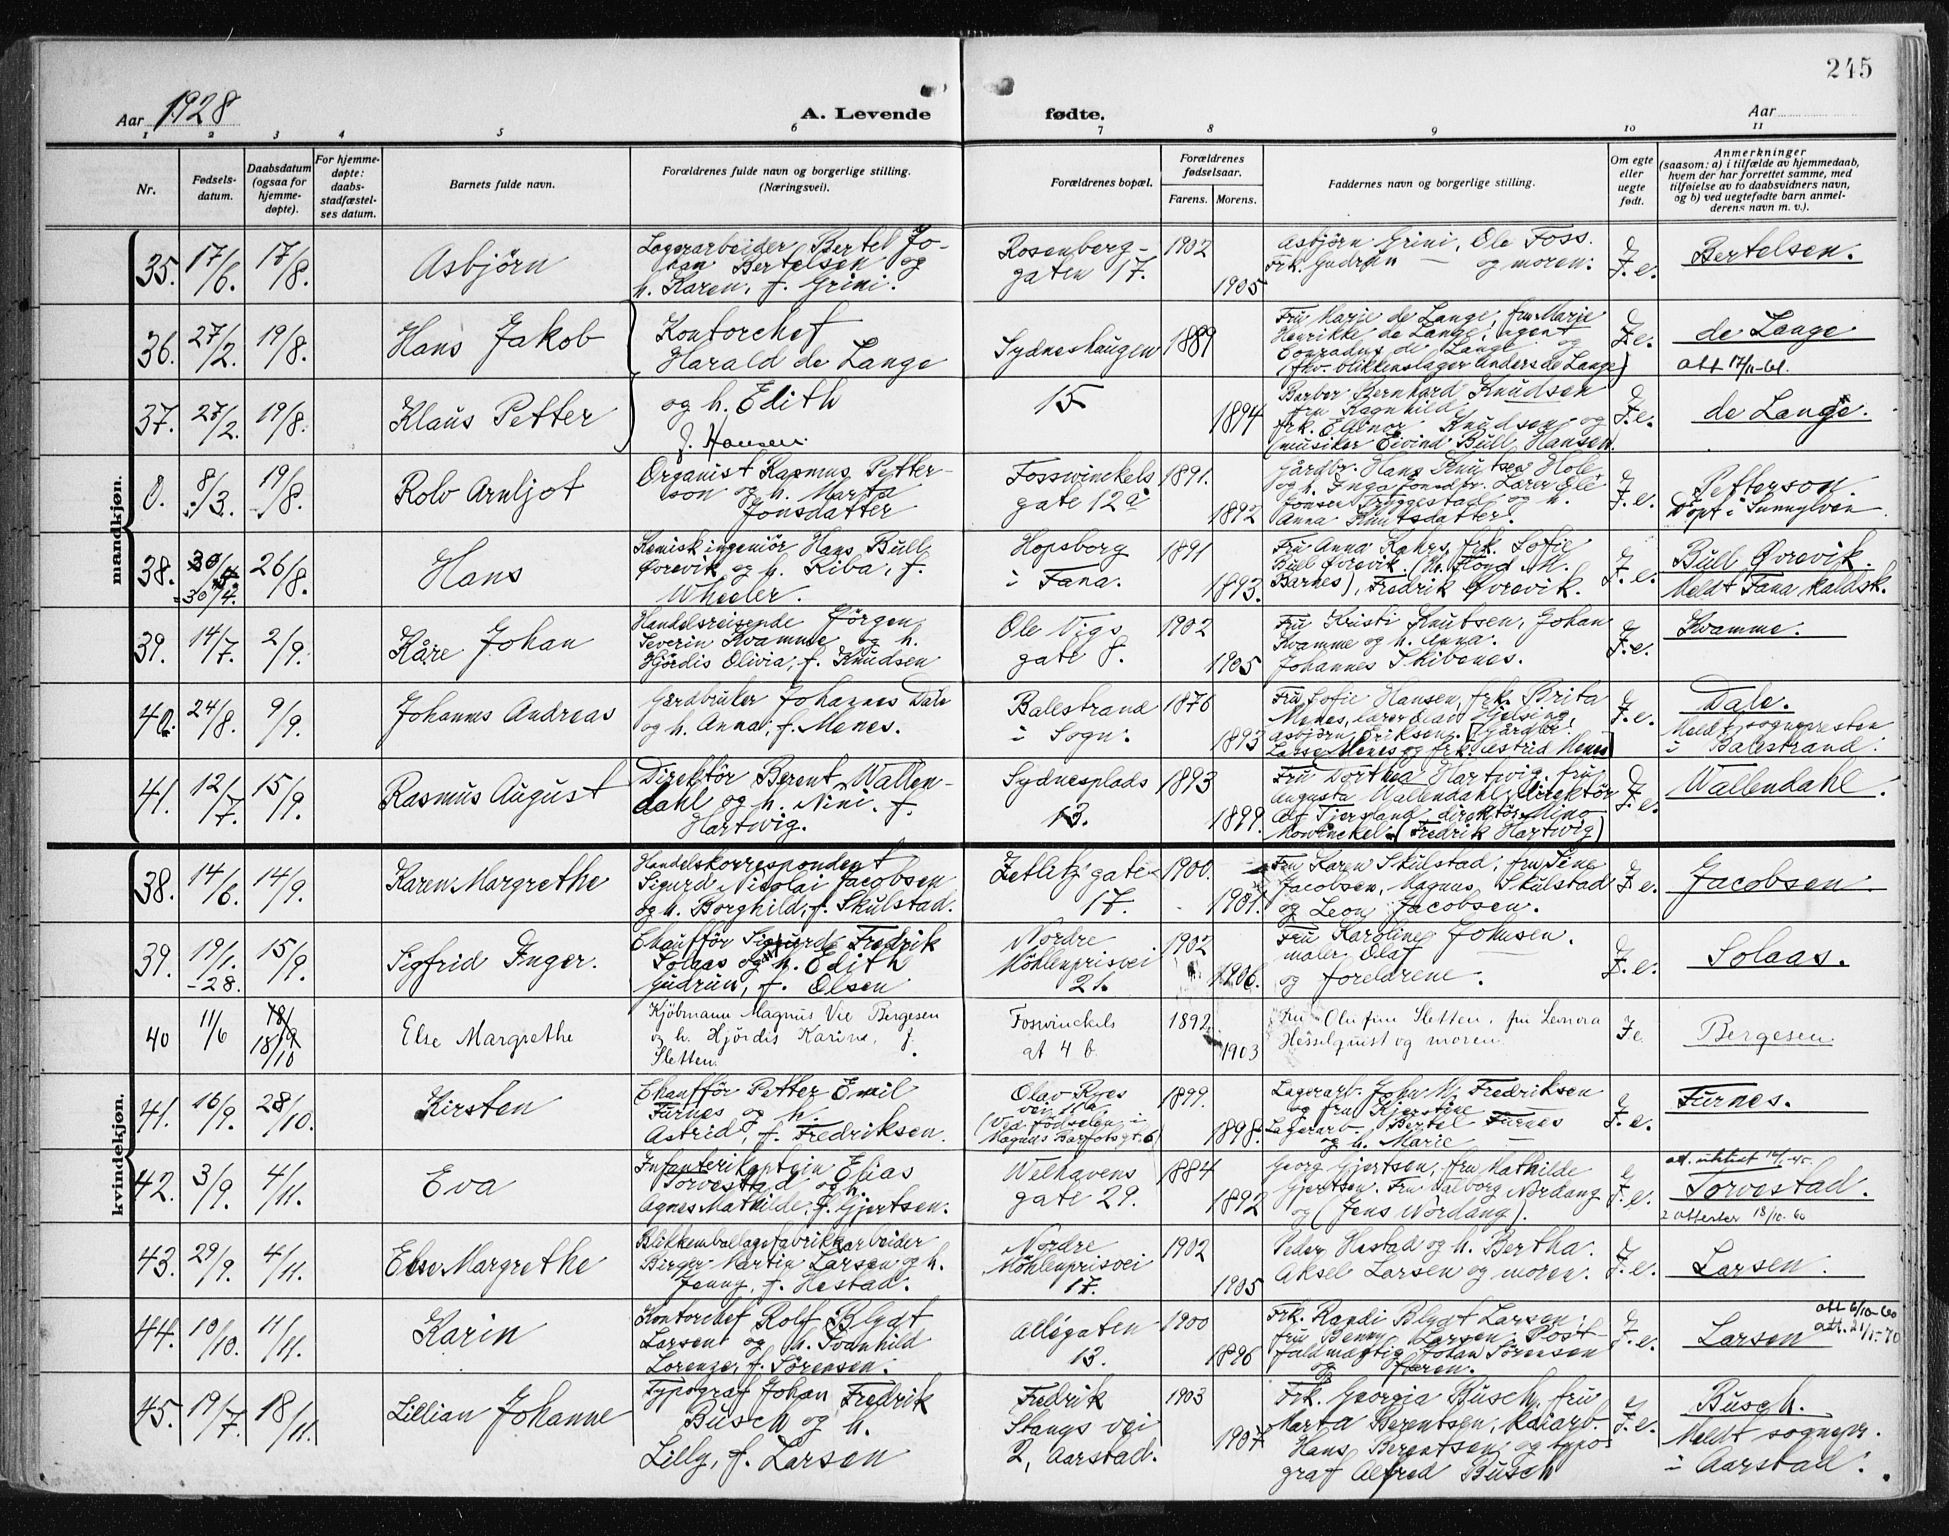 245
Aar 1928
A. Levende
fødte.
Aar
1 2 3 4 5 6 7 8 9 10 11
Nr.
Fødsels-
datum.
Daabsdatum
(ogsaa for
hjemme-
døpte).
For hjemme-
døpte:
daabs-
stadfæstel-
ses datum.
Barnets fulde navn.
Forældrenes fulde navn og borgerlige stilling.
(Næringsvei).
Forældrenes bopæl.
Forældrenes
fødselsaar.
Farens. Morens.
Faddernes navn og borgerlige stilling.
Om egte
eller
uegte
født.
Anmerkninger
(saasom: a) i tilfælde av hjemmedaab,
hvem der har forrettet samme, med
tilføielse av to daabsvidners navn,
og b) ved uegtefødte barn anmel-
derens navn m. v.).
mandkjøn.
35. 17/6. 17/8. Asbjörn
Lagerarbeider Bertel Jo-
han Bertelsen og
h. Karen, f. Grini.
Rosenberg-
gaten 17.
1902
1905
Asbjörn Grini, Ole Foss.
Frk. Gudrun — og moren.
F. e.
Bertelsen.
36. 27/2. 19/8. Hans Jakob
Kontorchef
Harald de Lange
Sydneshaugen
1889
Fru Marje de Lange, fru Marje
Henrikke de Lange, agent
Conradus de Lange og
(fhv. blikkenslager Anders de Lange)
F. e.
de Lange
att 17/11-61.
37. 27/2. 19/8. Klaus Petter
og h. Edith
f. Hansen.
15
1894
Barber Bernhard Knudsen
fru Ragnhild
frk. Ellinor Knudsen og
(musiker Eivind Bull Hansen.
F. e.
de Lange.
0. 8/3. 19/8. Rolv Arnljot
Organist Rasmus Petter-
son og h. Marta
Jonsdatter
Fosswinckels
gate 12a
1891.
1892
Gårdbr. Hans Knutsen Hole
og h. Inga Lærer Ole
Jonsen Tryggestad og h.
Anna Knutsdatter.
F. e.
Petterson.
Döpt i Sunnylven
38. 30/4. 26/8. Hans
Kemisk ingeniör Hans Bull
Øvrevik og h. Riba, f.
Wheeler.
Hopsborg
i Fana.
1891
1893.
Fru Anna Rahrs, frk. Sofie
Bull Øvrevik. (Mr. Floyd M.
Barnes), Fredrik Øvrevik.
F. e.
Bull Øvrevik.
Meldt Fana kaldsk.
39. 14/7. 2/9. Kåre Johan
Handelsreisende Jörgen
Severin Kvamme og h.
Hjördis Olivia, f. Knudsen
Ole Vigs
gate 8.
1902
1905
Fru Kristi Knutsen, Johan
Kvamme og h. Anna.
Johannes Skibenes.
F. e.
Kvamme.
40. 24/8. 9/9. Johannes Andreas
Gårdbruker Johannes Dale
og h. Anna, f. Menes.
Balestrand
i Sogn.
1876
1893
Fru Sofie Hansen, frk. Brita
Menes, lærer Olav Hjelsing,
Asbjörn Eriksen. (Gårdbr.
Lasse Menes og frk. Astrid Menes)
F. e.
Dale.
Meldt sognepresten
i Balestrand.
41. 12/7. 15/9. Rasmus August
Direktör Berent Wallen-
dahl og h. Nini, f.
Hartvig.
Sydnesplads
13.
1893
1899.
Fru Dorthea Hartvig, fru
Augusta Wallendahl, direktör
Alf Tjersland, direktör Mino
Mowinckel. (Fredrik Hartwig)
F. e.
Wallendahl.
kvindekjøn.
38. 14/6. 14/9. Karen Margrethe
Handelskorrespondent
Sigurd Nicolai Jacobsen
og h. Borghild, f. Skulstad.
Zetlitz gate
17.
1900.
1901.
Fru Karen Skulstad, fru Sine
Jacobsen, Magnus Skulstad
og Leon Jacobsen.
F. e.
Jacobsen.
39. 19/1. -28. 15/9. Sigfrid Inger.
Chaufför Sigurd Fredrik
Solaas og h. Edith
Gudrun, f. Olsen
Nordre
Möhlenprisvei
21.
1902
1906.
Fru Karoline Johnsen.
maler Olaf
og foreldrene —.
F. e.
Solaas.
40 11/6 18/9 18/10 Else Margrethe
Kjöbmann Magnus Vie Bergesen
og h. Hjördis Karina, f.
Sletten.
Fosswinckels
gt 4 b.
1892
1903
Fru Olufine Sletten, fru Lenora
Hesselquist og moren
F. e.
Bergesen
41. 16/9. 28/10. Kirsten
Chaufför Petter Emil
Fürnes og h.
Astrid, f. Fredriksen.
Olav Ryes
vei 11a.
(Ved födselen i
Magnus Barfotsgt. 6)
1899.
1898.
Lagerarb. John M. Fredriksen
og fru Kjerstine
Lagerarb. Bertel Fürnes
og h. Marie —
F. e.
Fürnes.
42. 3/9. 4/11. Eva
Infanterikaptein Elias
Torvestad og h.
Agnes Mathilde, f. Gjertsen.
Welhavens
gate 29.
1884
1892
Georg Gjertsen, fru Mathilde
Gjertsen. Fru Valborg Nordang
og (Jens Nordang).
F. e.
Torvestad.
2 attester 18/10-60
43. 29/9. 4/11. Else Margrethe
Blikkemballagefabrikkarbeider
Birger Martin Larsen og h.
Jenny, f. Hestad.
Nordre
Möhlenprisvei
17.
1902
1905
Peder Hestad og h. Bertha.
Aksel Larsen og moren.
F. e.
Larsen.
44. 10/10. 11/11. Karin
Kontorchef Rolf Blydt
Larsen og h. Svanhild
Lorenze, f. Sørensen.
Allégaten
13.
1900
1896
Frk. Randi Blydt Larsen,
fru Benny Larsen. Post-
fuldmægtig Johan Sörensen
og faren.
F. e.
att 6/10-60
att. 21/1-70
Larsen
45. 19/7. 18/11. Lillian Johanne
Typograf Johan Fredrik
Busch og h.
Lilly, f. Larsen
Fredrik
Stangs vei
2, Aarstad.
1903
1907
Frk. Georgia Busch, fru
Marta Berentsen, kaiarb.
Hans Berentsen og typo-
graf Alfred Busch
F. e.
Busch.
Meldt sognepr.
i Aarstad.